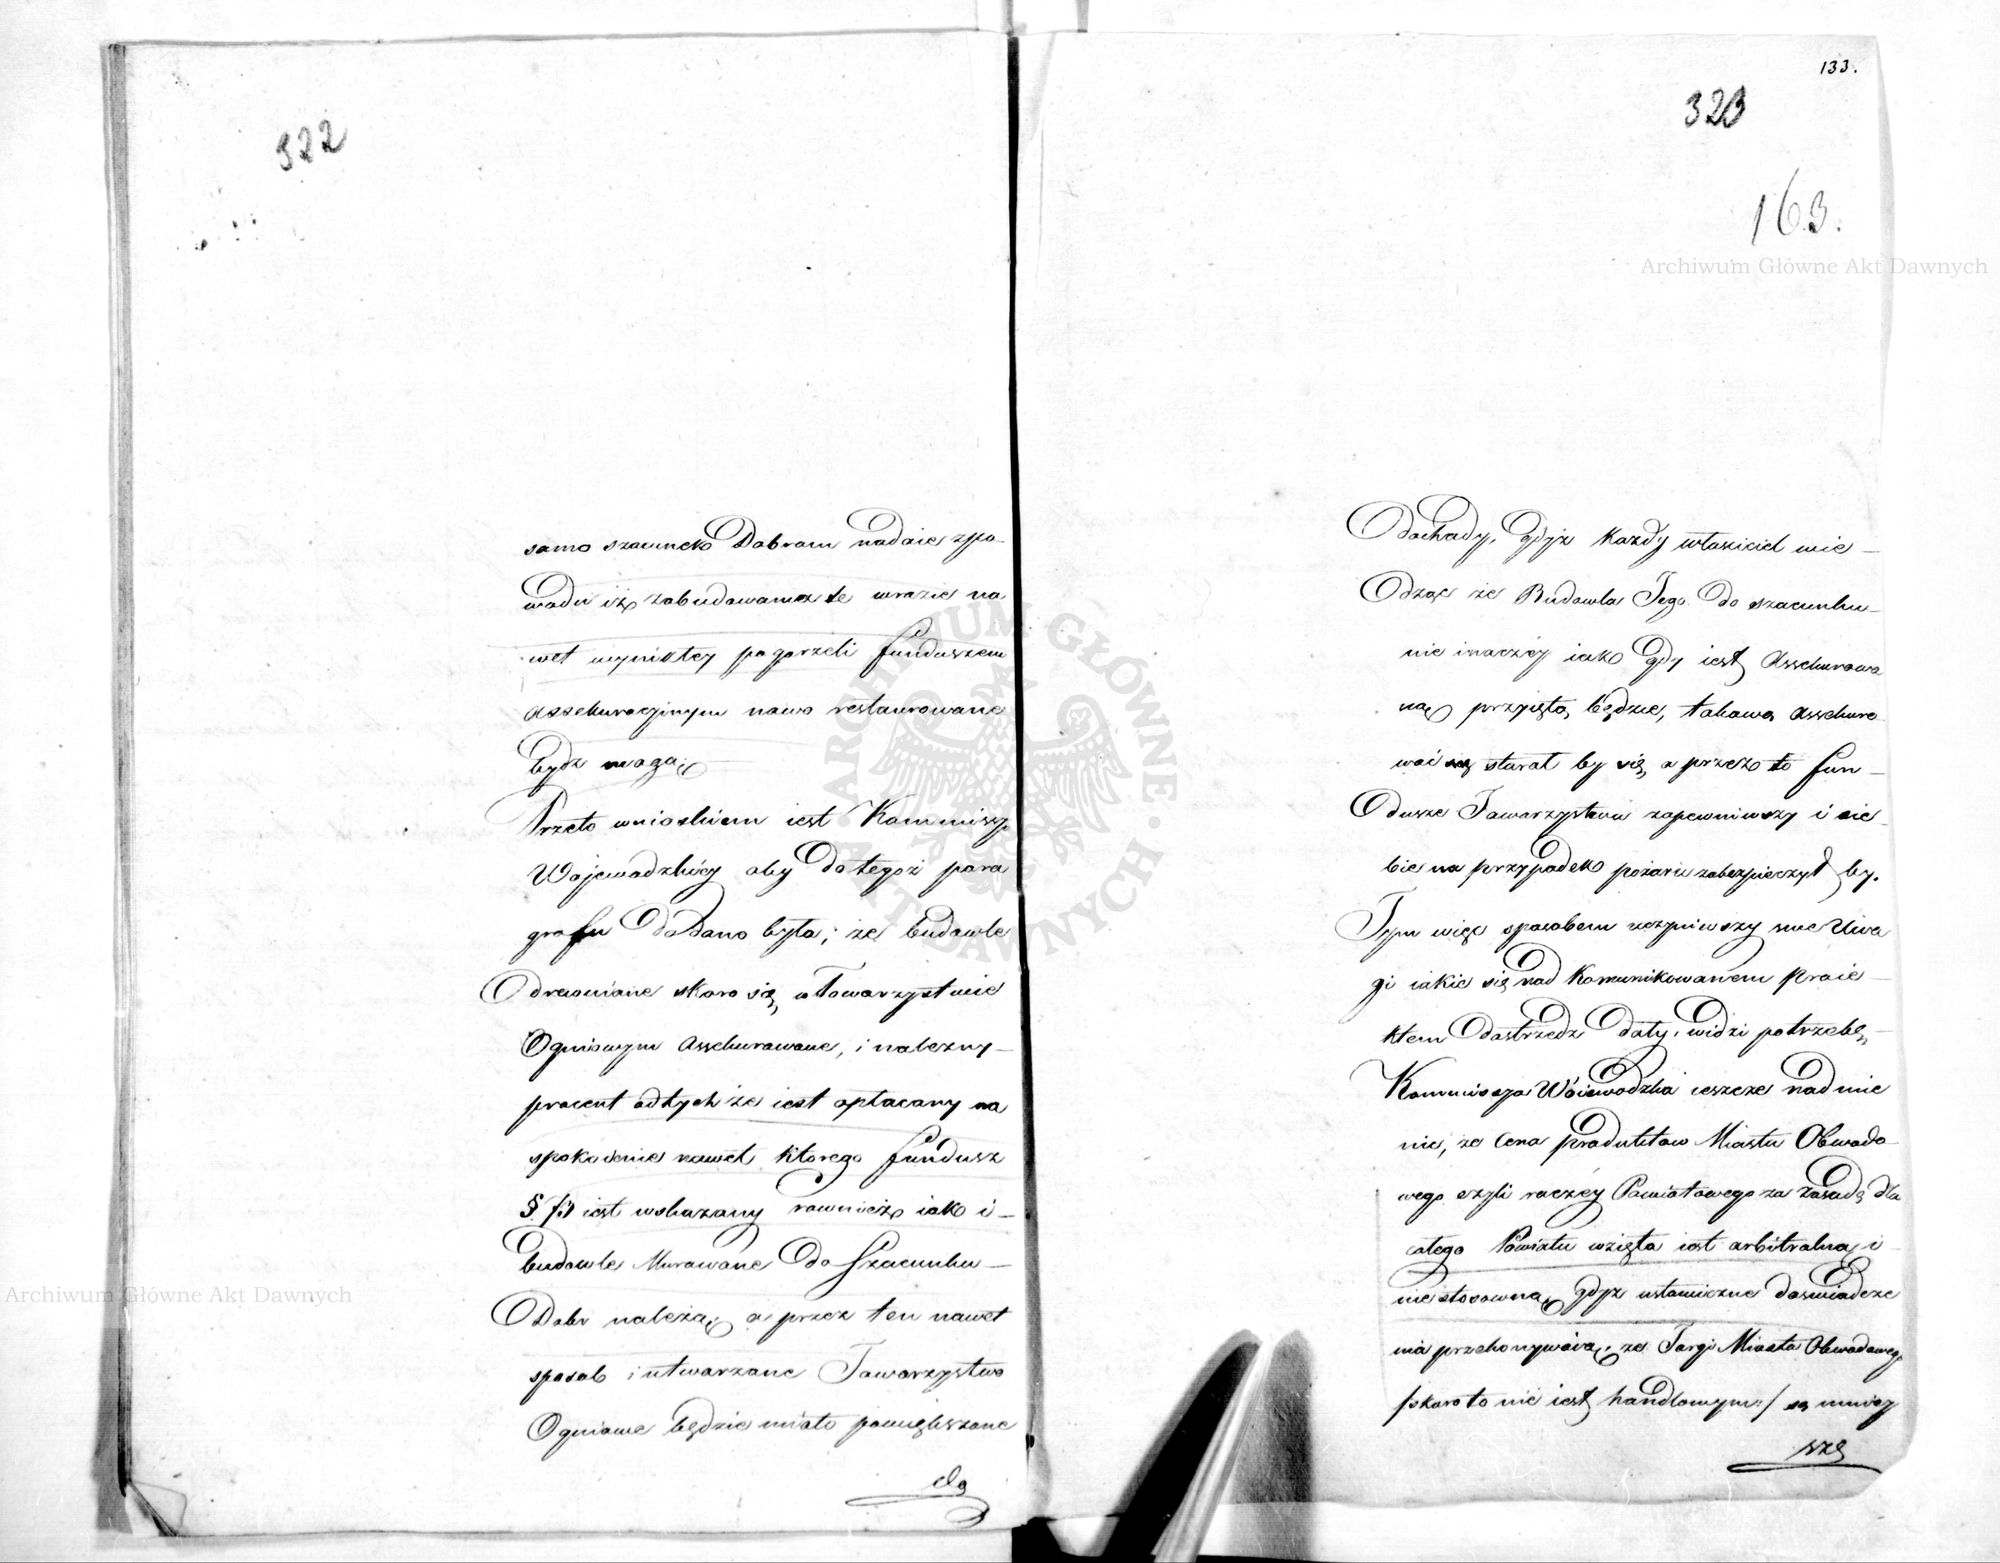 322
samo szacunek Dobrom nadaie zpo-
wodu iż zabudowania te wrazie na
wet wynikłey pogorzeli funduszem
assekuracyinym nawo restaurowane
bydz mogą;
Przeto wnioskiem iest Kommissyi
Wojewodzkiéy aby do tegoż para
grafu dodano było; że budowle
drewniane skoro się w Towarzystwie
Ogniowym Assekurowane, i należny-
procent od tych że iest opłacany na
spokoienie nawet ktorego fundusz
§ iest wskazany rownież iako i-
budowle Murowane do Szacunku-
Dobr należą; a przez ten nawet
sposob i utworzone Towarzystwo
Ogniowe będzie miało powiększone
do
133.
323
163.
Dochody, Gdyż każdy właściciel wie-
dząc że Budowla Jego do szacunku-
nie inaczéy iako gdy iest Assekurowa
ną przyięta będzie, takową Assekuro
wać starał by się a przezto fun-
dusze Towarzystwu zapewniwszy i sie-
bie na przypadek pożaru zabezpieczył by.
Tym więc sposobem uczyniwszy swe Uwa
gi iakie się nad Komunikowanem proie-
ktem dostrzedz dały, widzi potrzebę-
Kommissya Wóiewodzka ieszcze nadmie
nić, że Cena produktow Miasta Obwodo-
wego czyli raczéy Powiatowego za zasadę dla
całego Powiatu wzięta iest arbitralną i-
niestosowną, gdyż ustawiczne doświadcze
nia przekonywaią, że Targi Miasta Obwodowego
/skoro to nie iest handlowym:/ są mniéy
sze
Archiwum Główne Akt Dawnych
Archiwum Główne Akt Dawnych
ARCHIWUM GŁÓWNE AKT DAWNYCH